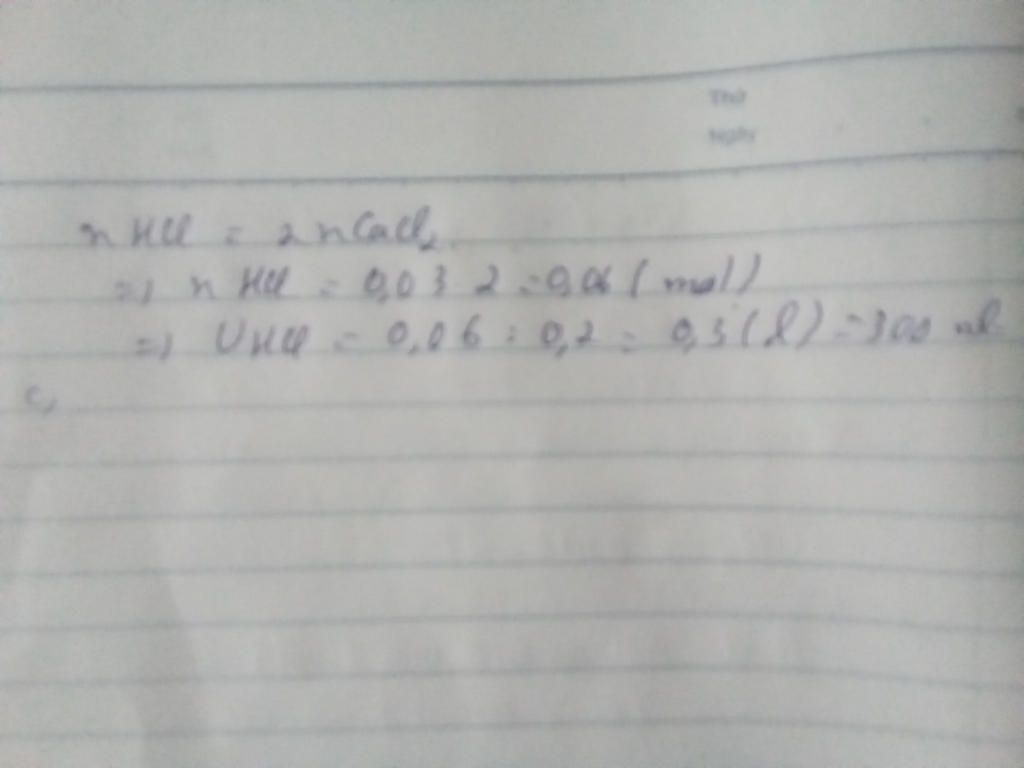 Thứ
Ngày
n HCl = 2 n CaCl₂
=> n HCl = 0,03 . 2 = 0,06 ( mol )
=> V HCl = 0,06 : 0,2 = 0,3 ( l ) = 300 ml
c,